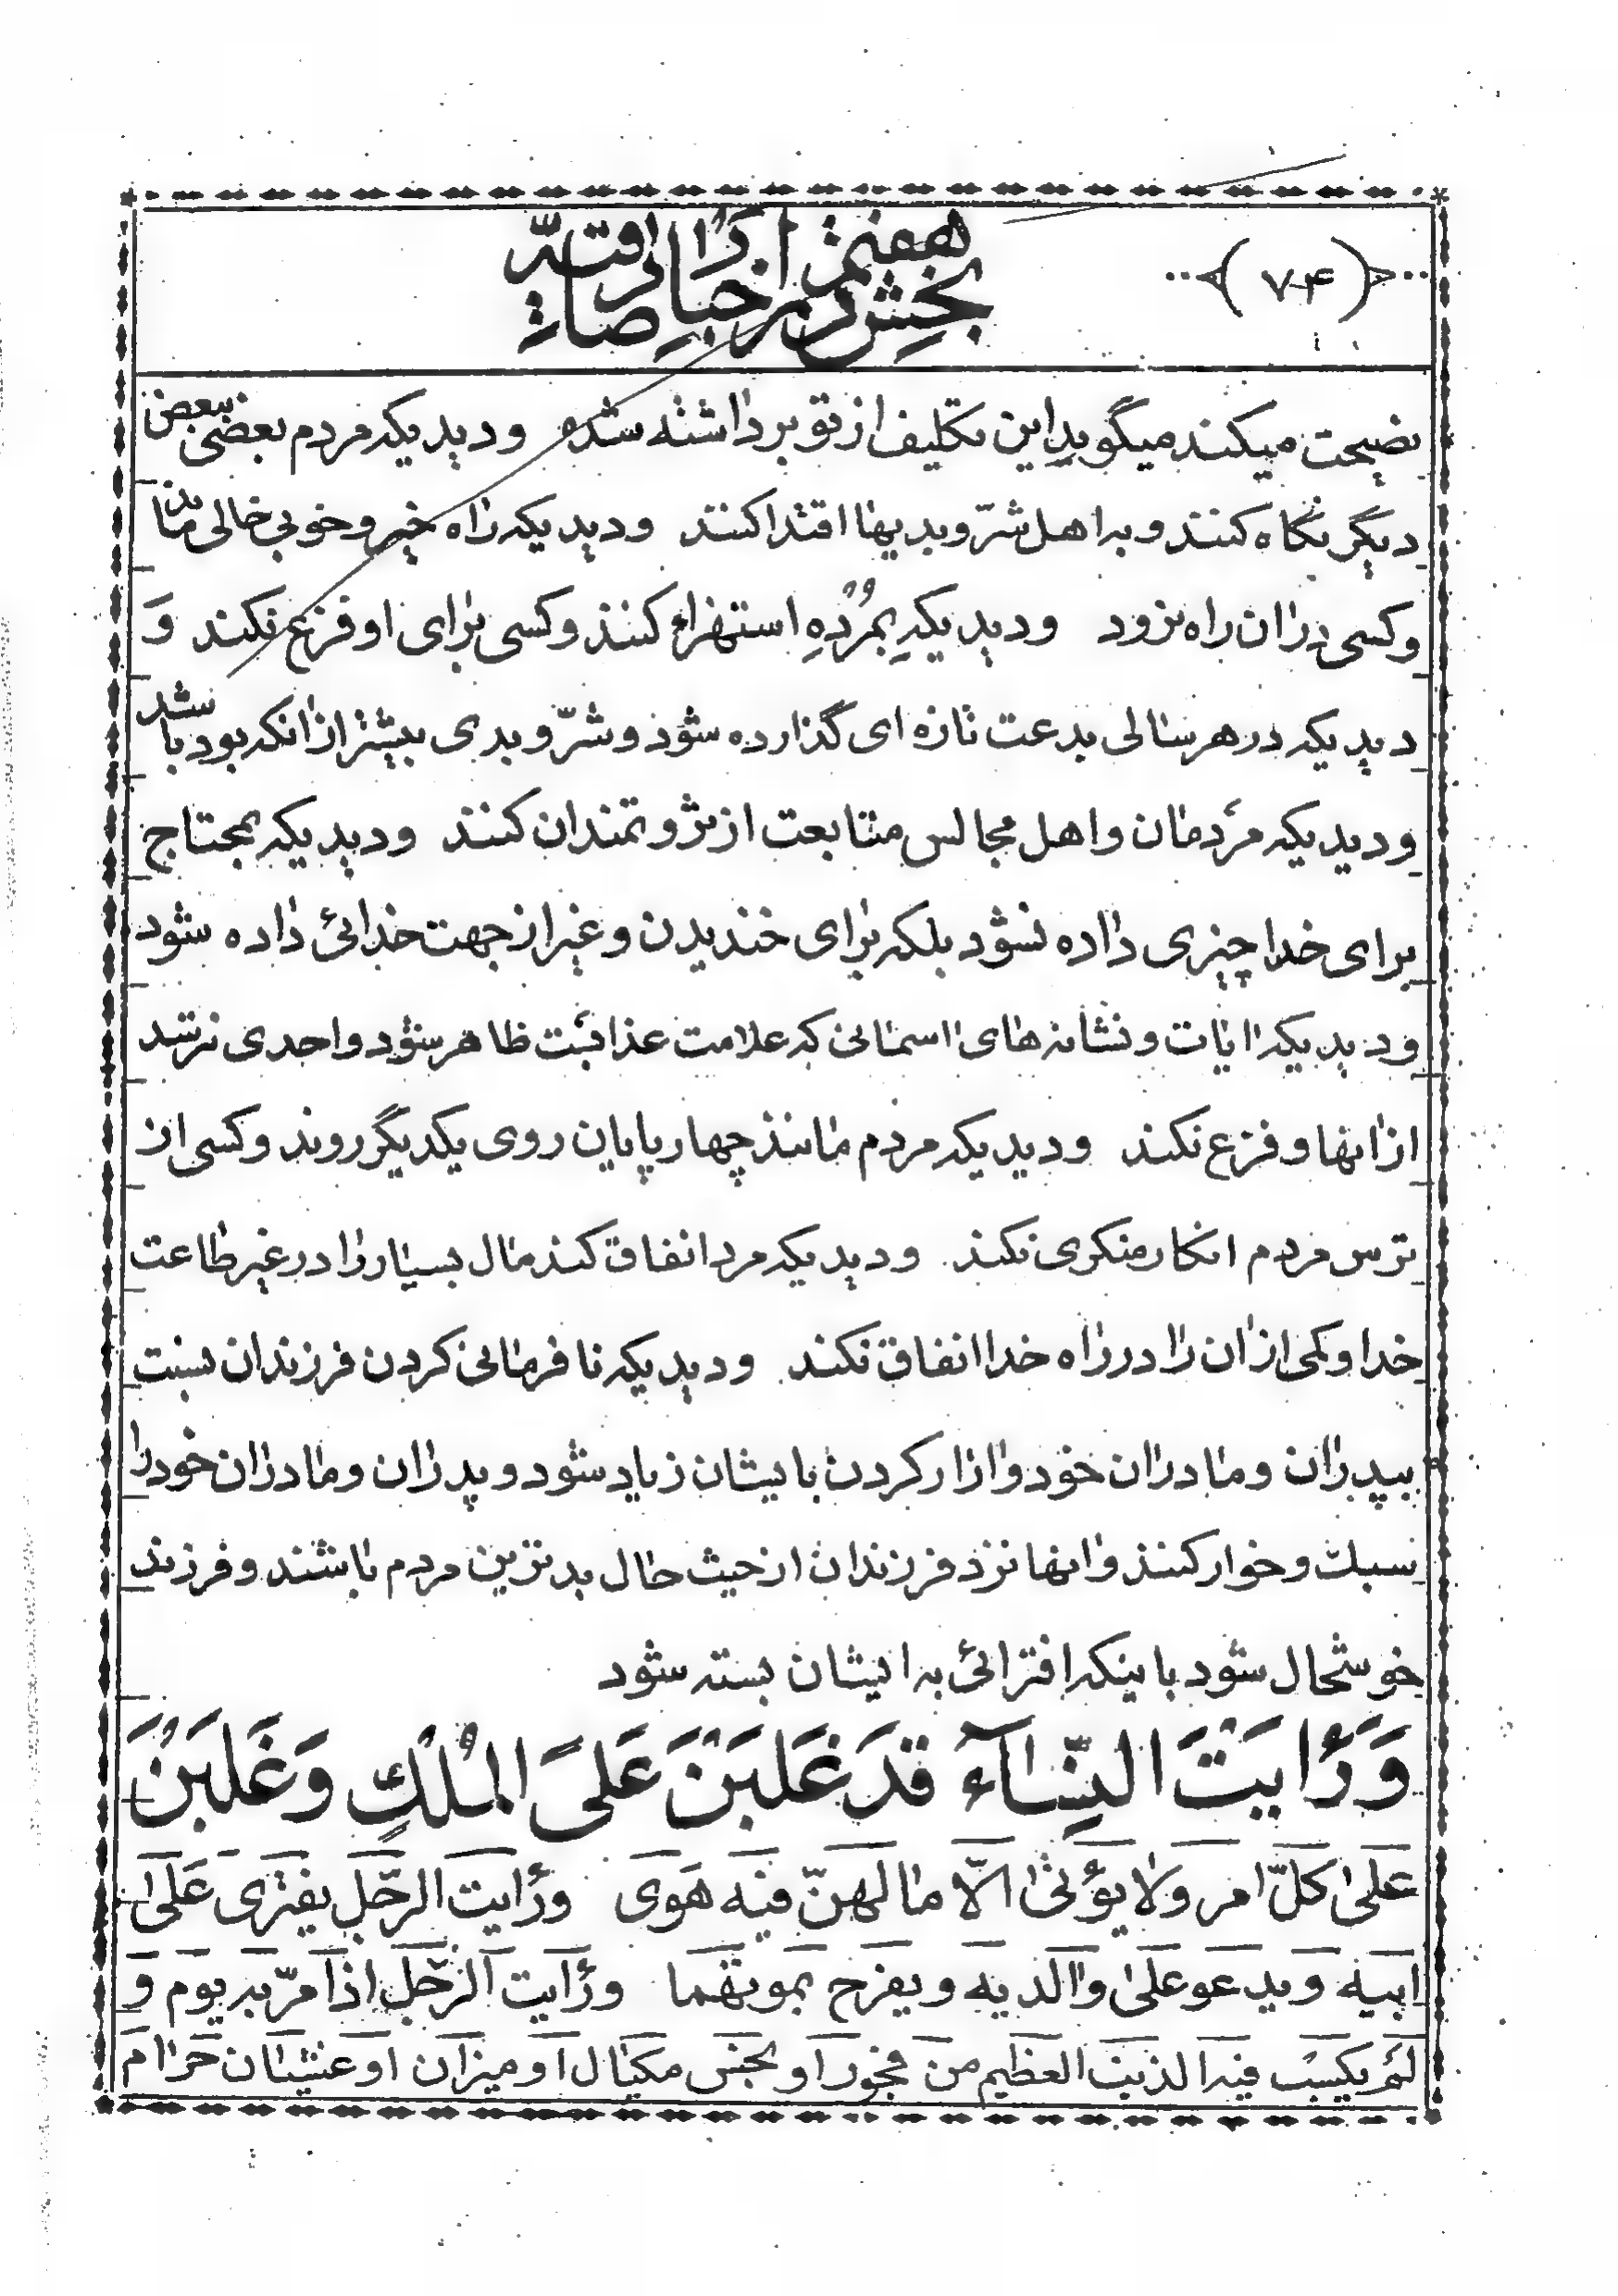 ﴿ ۷۴ ﴾
بخش هفتم در اخبار صادقیه
نصیحت میکند میگوید این تکلیف از تو برداشته شده و دیدیکه مردم بعضی ببعض
دیگر نگاه کنند و به اهل شرّ و بدیها اقتدا کنند و دیدیکه راه خیر و خوبی خالی ماند
و کسی در ان راه نرود و دیدیکه بمُرده استهزاء کنند و کسی برای او فزع نکند و
دیدیکه در هر سالی بدعت تازه ای گذارده شود و شرّ و بدی بیشتر از انکه بود باشد
و دیدیکه مردمان و اهل مجالس متابعت از ثروتمندان کنند و دیدیکه بمحتاج
برای خدا چیزی داده نشود بلکه برای خندیدن و غیر از جهت خدائی داده شود
و دیدیکه ایات و نشانه های اسمانی که علامت عذابست ظاهر شود و احدی نرسد
از انها و فزع نکند و دیدیکه مردم مانند چهارپایان روی یکدیگر روند و کسی از
ترس مردم انکار منکری نکند و دیدیکه مرد انفاق کند مال بسیار را در غیر طاعت
خدا و کمی از ان را در راه خدا انفاق نکند و دیدیکه نافرمانی کردن فرزندان نسبت
بپدران و مادران خود و ازار کردن بایشان زیاد شود و پدران و مادران خود را
سبك و خوار کنند و انها نزد فرزندان از حیث حال بدترین مردم باشند و فرزند
خوشحال شود باینکه افترائی به ایشان بسته شود
وَرَأَیتَ النِّسآءَ قَد غَلَبنَ عَلَی المُلكِ وَغَلَبنَ
عَلیٰ کلّ امر ولا یؤتیٰ الّا ما لهنّ فیه هَوی ورأیت الرّجل یفتری عَلیٰ
ابیه ویدعو علیٰ والدیه ویفرح بموتهما ورأیت الرّجل اذا مرّ به یوم و
لَم یکسب فیه الذنب العظیم من فجور او بخس مکیال او میزان او غشیان حَرام